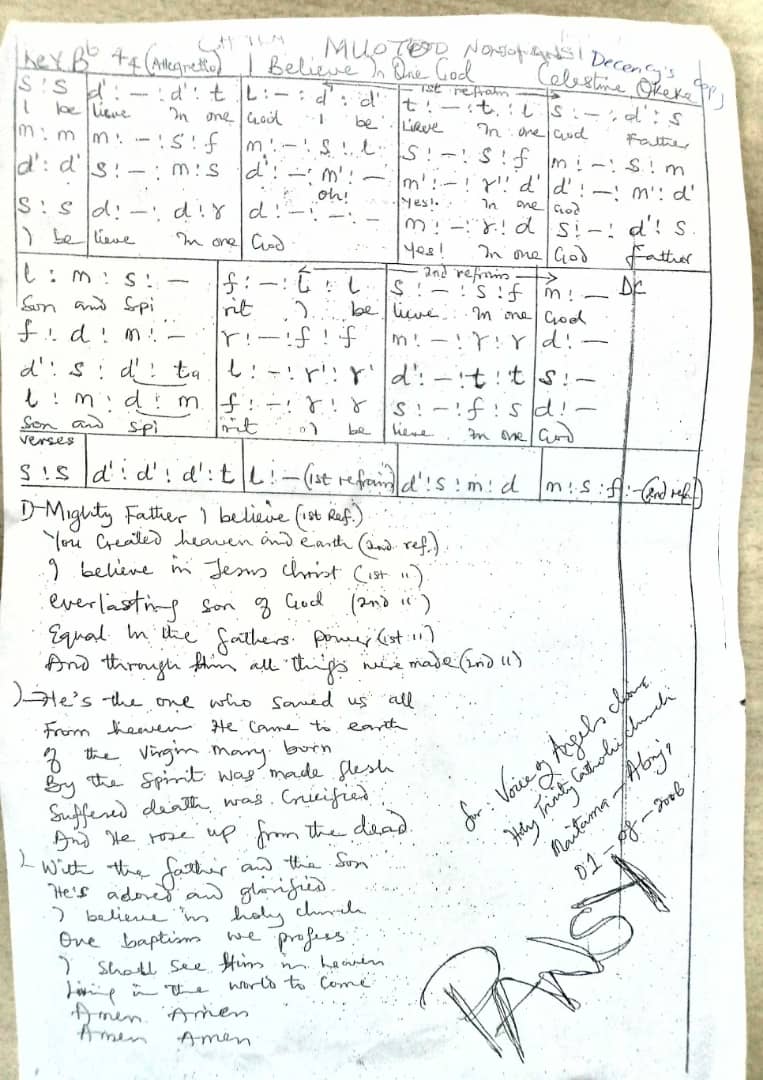 Key B♭ 4/4 (Allegretto) I Believe In One God Celestine Okeke
Decency's copy
1st refrain
s : s | d' : — : d' : t | l : — : d' : d' | t : — : t : l | s : — : d' : s
I be lieve In one God I be lieve In one God Father
m : m | m : — : s : f | m : — : s : l | s : — : s : f | m : — : s : m
d' : d' | s : — : m : s | d' : — : m' : — | m' : — : r' : d' | d' : — : m' : d'
oh! Yes! In one God
s : s | d : — : d : r | d : — : — : — | m : — : r : d | s : — : d' : s
I be lieve In one God Yes! In one God Father
2nd refrain
l : m : s : — | f : — : l : l | s : — : s : f | m : — D.C
Son and Spi rit I be lieve In one God
f : d : m : — | r : — : f : f | m : — : r : r | d : —
d' : s : d' : ta | l : — : r' : r' | d' : — : t : t | s : —
l : m : d : m | f : — : r : r | s : — : f : s | d : —
Son and Spi rit I be lieve In one God
verses
s : s | d' : d' : d' : t | l : — (1st refrain) | d' : s : m : d | m : s : f : — (2nd ref.)
D-Mighty Father I believe (1st Ref.)
You Created heaven and earth (2nd ref.)
I believe in Jesus Christ (1st ")
everlasting son of God (2nd ")
Equal In the fathers power (1st ")
And through Him all things were made (2nd ")
) He's the one who saved us all
From heaven He came to earth
of the Virgin Mary born
By the Spirit was made flesh
Suffered death was Crucified
And He rose up from the dead
With the father and the Son
He's adored and glorified
I believe in holy church
One baptism we profess
I shall see Him in heaven
Living in the world to come
Amen Amen
Amen Amen
for: Voice of Angels choir
Holy Trinity Catholic church
Maitama - Abuja
01-08-2006
PANSY